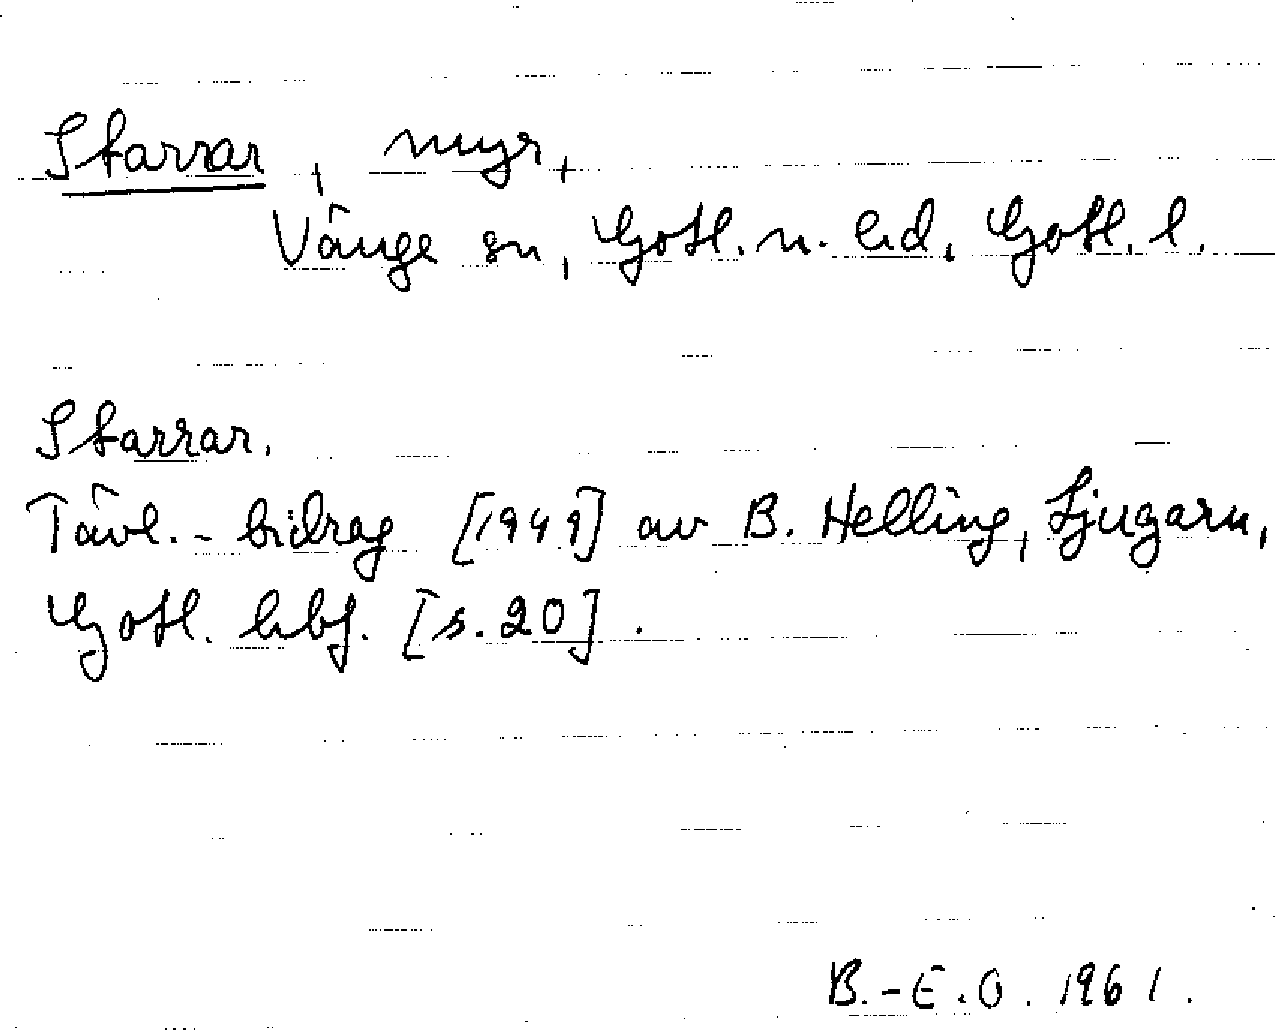 Starrar, myr,
Vänge sn, Gotl. n. hd, Gotl. l.
Starrar.
Tävl.-bidrag [1949] av B. Helling, Ljugarn,
Gotl. hbf. [s. 20].
B.-E.O. 1961.